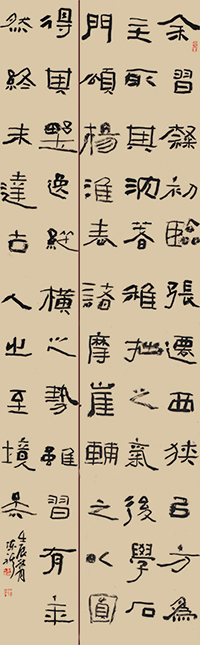 余習隸初臨張遷西狹以方為
主取其沈著雄拙之氣後學石
門頌楊淮表諸摩崖輔之以圓
得其野逸縱橫之勢雖習有年
然終未達古人之至境矣
壬辰